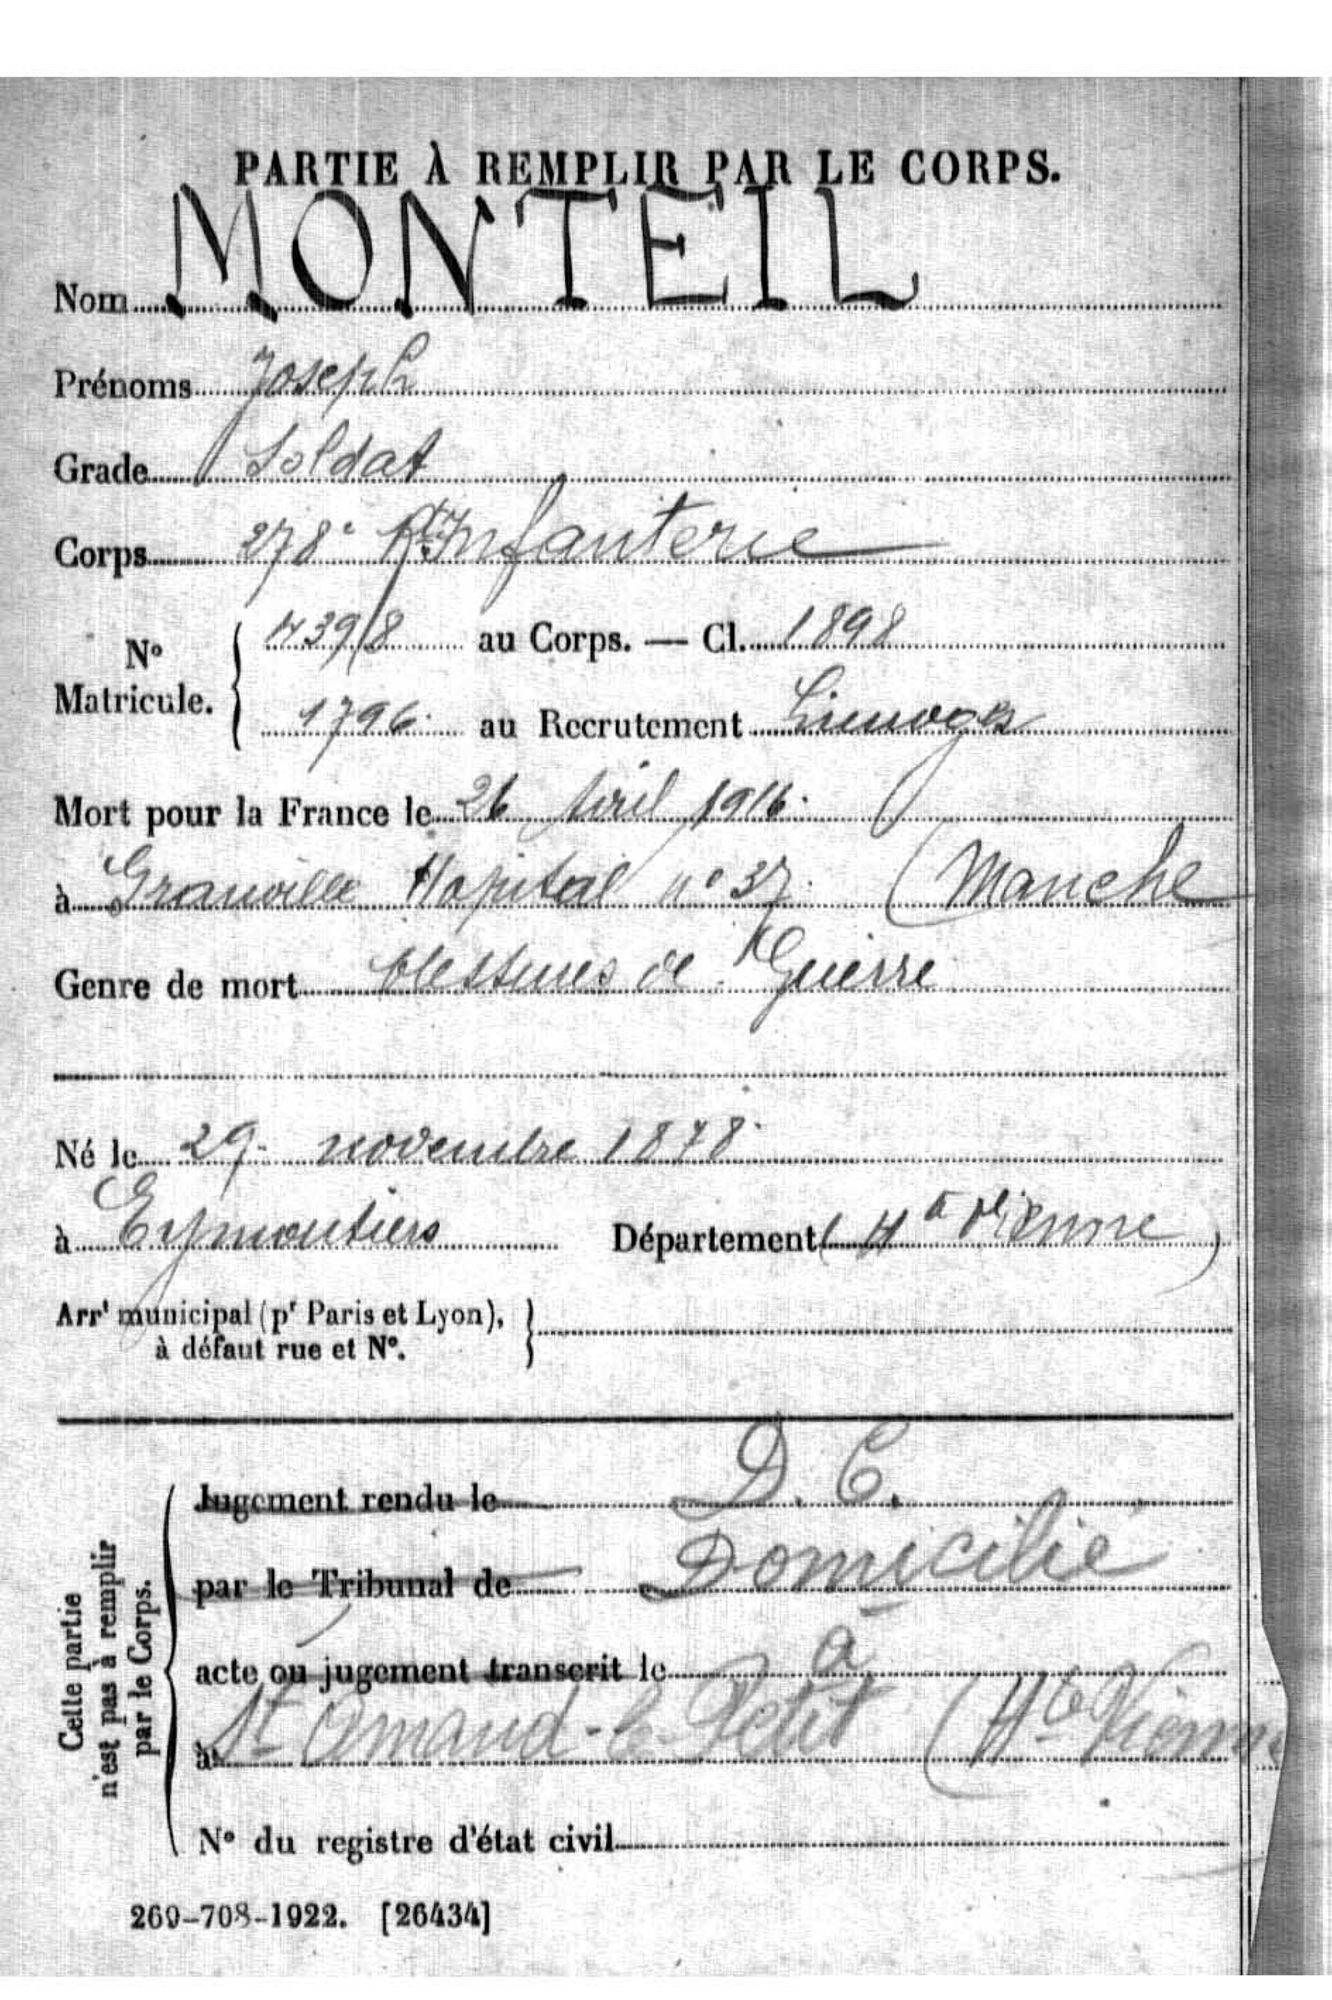 PARTIE À REMPLIR PAR LE CORPS.
Nom MONTEIL
Prénoms Joseph
Grade Soldat
Corps 278e Rt Infanterie
No Matricule. { 17398 au Corps. — Cl. 1898
1796 au Recrutement Limoges
Mort pour la France le 26 Avril 1916.
à Granville Hopital no 37. (Manche
Genre de mort blessures de Guerre
Né le 29. novembre 1878.
à Eymoutiers Département (Hte Vienne)
Arrt municipal (pr Paris et Lyon),
à défaut rue et No. }
Cette partie
n'est pas à remplir
par le Corps.
Jugement rendu le D. C.
par le Tribunal de Domicilié
acte ou jugement transcrit le a
à St Amand-le-Petit (Hte Vienne
No du registre d'état civil
269-708-1922. [26434]